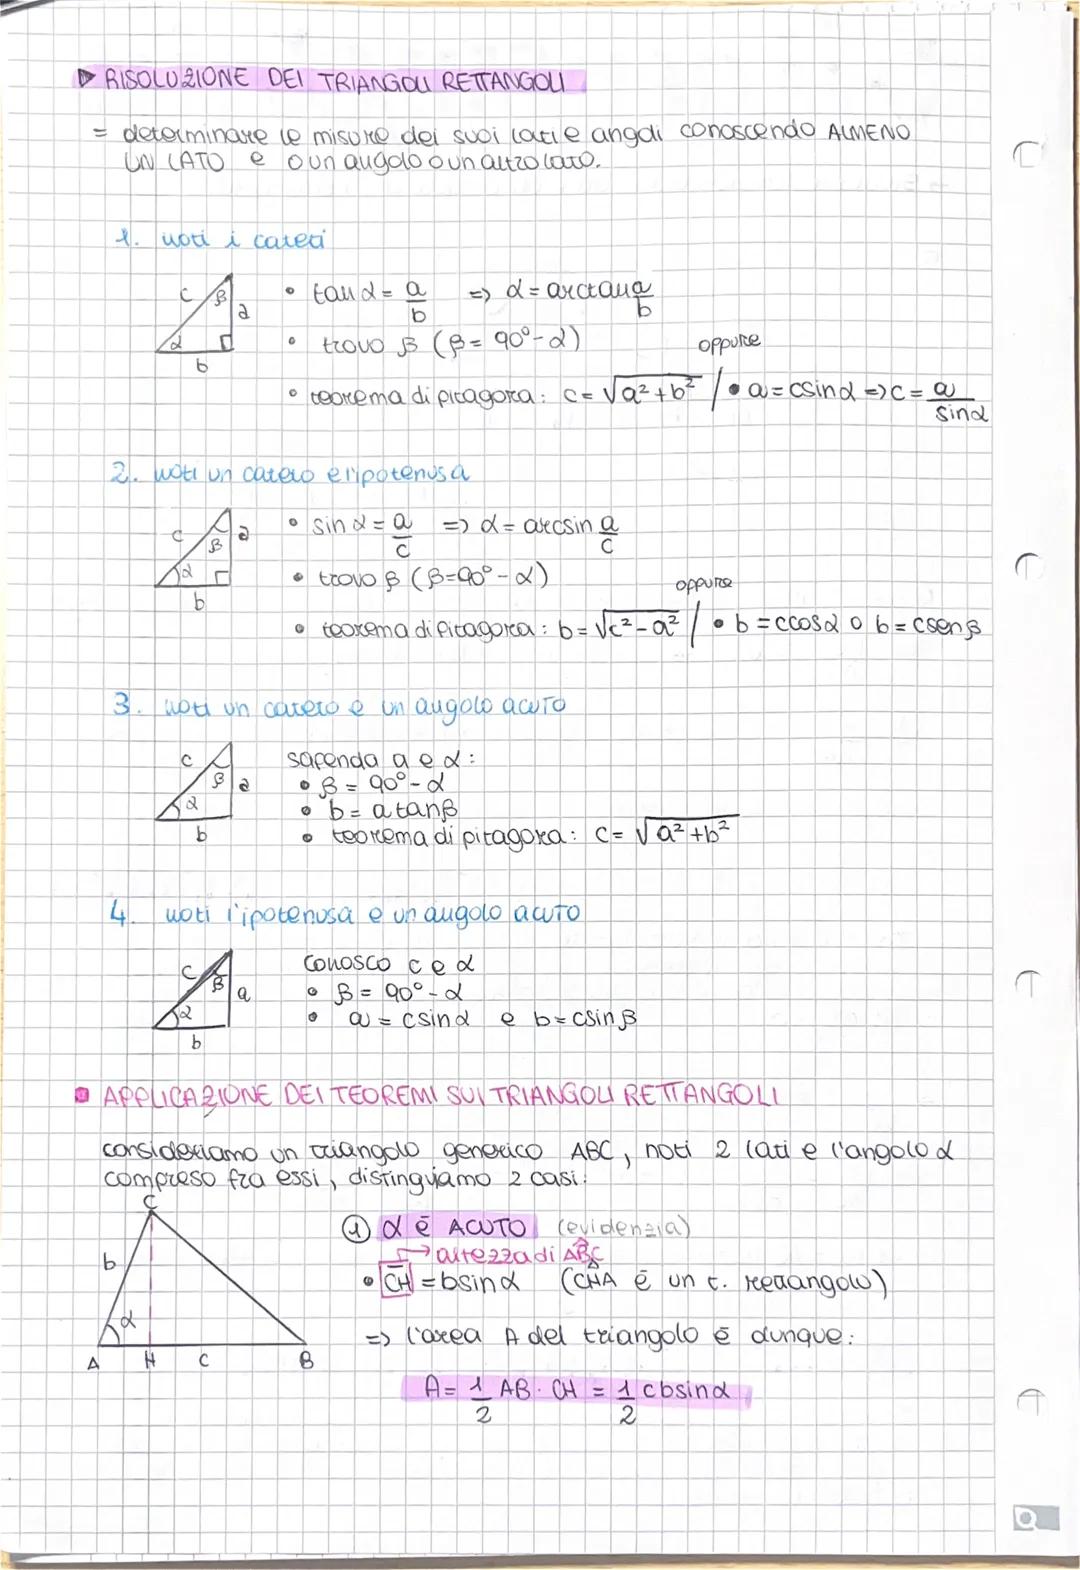 ▷ RISOLUZIONE DEI TRIANGOLI RETTANGOLI
= determinare le misure dei suoi lati e angoli conoscendo ALMENO
UN LATO e o un angolo o un altro lato.
1. noti i cateti
c β a α b
• tanα = a/b => α = arctan a/b
• trovo β (β = 90° - α)
oppure
• teorema di pitagora: c = √a² + b² / • a = csinα => c = a/sinα
2. noti un cateto e l'ipotenusa
c β a α b
• sinα = a/c => α = arcsin a/c
• trovo β (β = 90° - α)
oppure
• teorema di Pitagora: b = √c² - a² / • b = ccosα o b = csenβ
3. noti un cateto e un angolo acuto
c β a α b
sapendo a e α:
• β = 90° - α
• b = a tanβ
• teorema di pitagora: c = √a² + b²
4. noti l'ipotenusa e un angolo acuto
c β a α b
conosco c e α
• β = 90° - α
• a = csinα e b = csinβ
▪ APPLICAZIONE DEI TEOREMI SUI TRIANGOLI RETTANGOLI
consideriamo un triangolo generico ABC, noti 2 lati e l'angolo α
compreso fra essi, distinguiamo 2 casi:
C b α A H c B
① α è ACUTO (evidenzia)
→ altezza di ABC
• CH = bsinα (CHA è un t. rettangolo)
=> l'area A del triangolo è dunque:
A = 1/2 AB · CH = 1/2 cbsinα